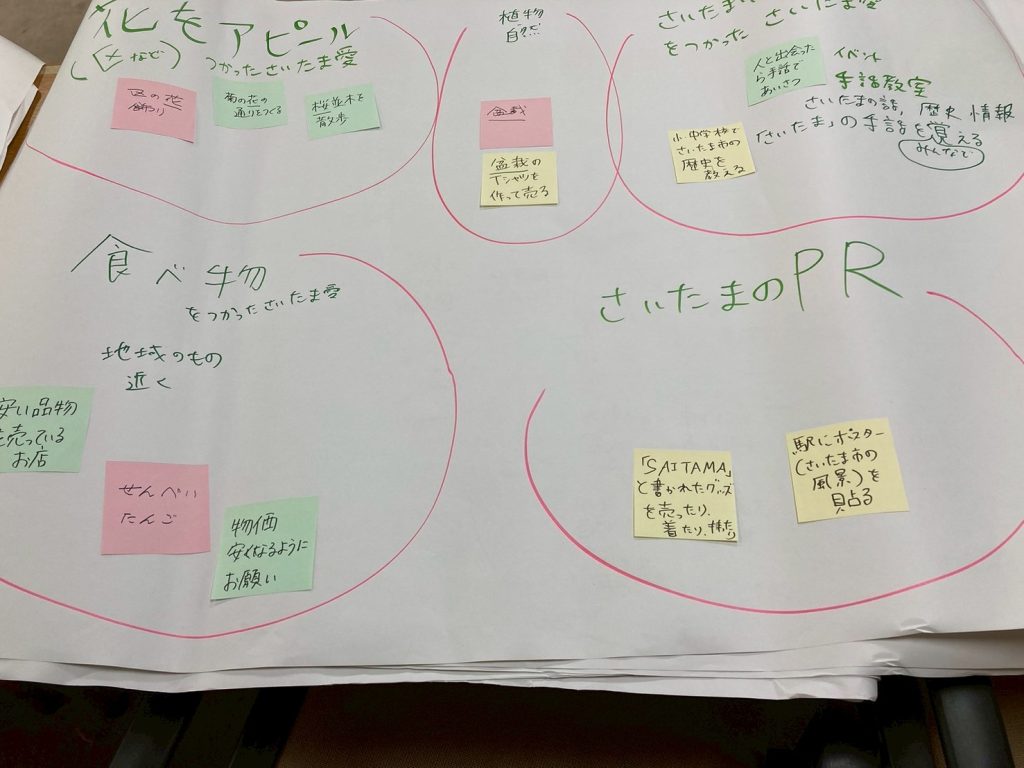 花をアピール
(区など)
つかったさいたま愛
区の花
飾り
菊の花の
通りをつくる
桜並木を
散歩
植物
自然
盆栽
盆栽の
Tシャツを
作って売る
さいたま
さいたま愛
をつかった
人と出会った
ら手話で
あいさつ
イベント
手話教室
さいたまの話, 歴史 情報
「さいたま」の手話を覚える
みんなで
小・中学校で
さいたま市の
歴史を
教える
食べ物
をつかったさいたま愛
地域のもの
近く
安い品物
を売っている
お店
せんべい
だんご
物価
安くなるように
お願い
さいたまのPR
「SAITAMA」
と書かれたグッズ
を売ったり、
着たり、持ったり
駅にポスター
(さいたま市の
風景)を
貼る